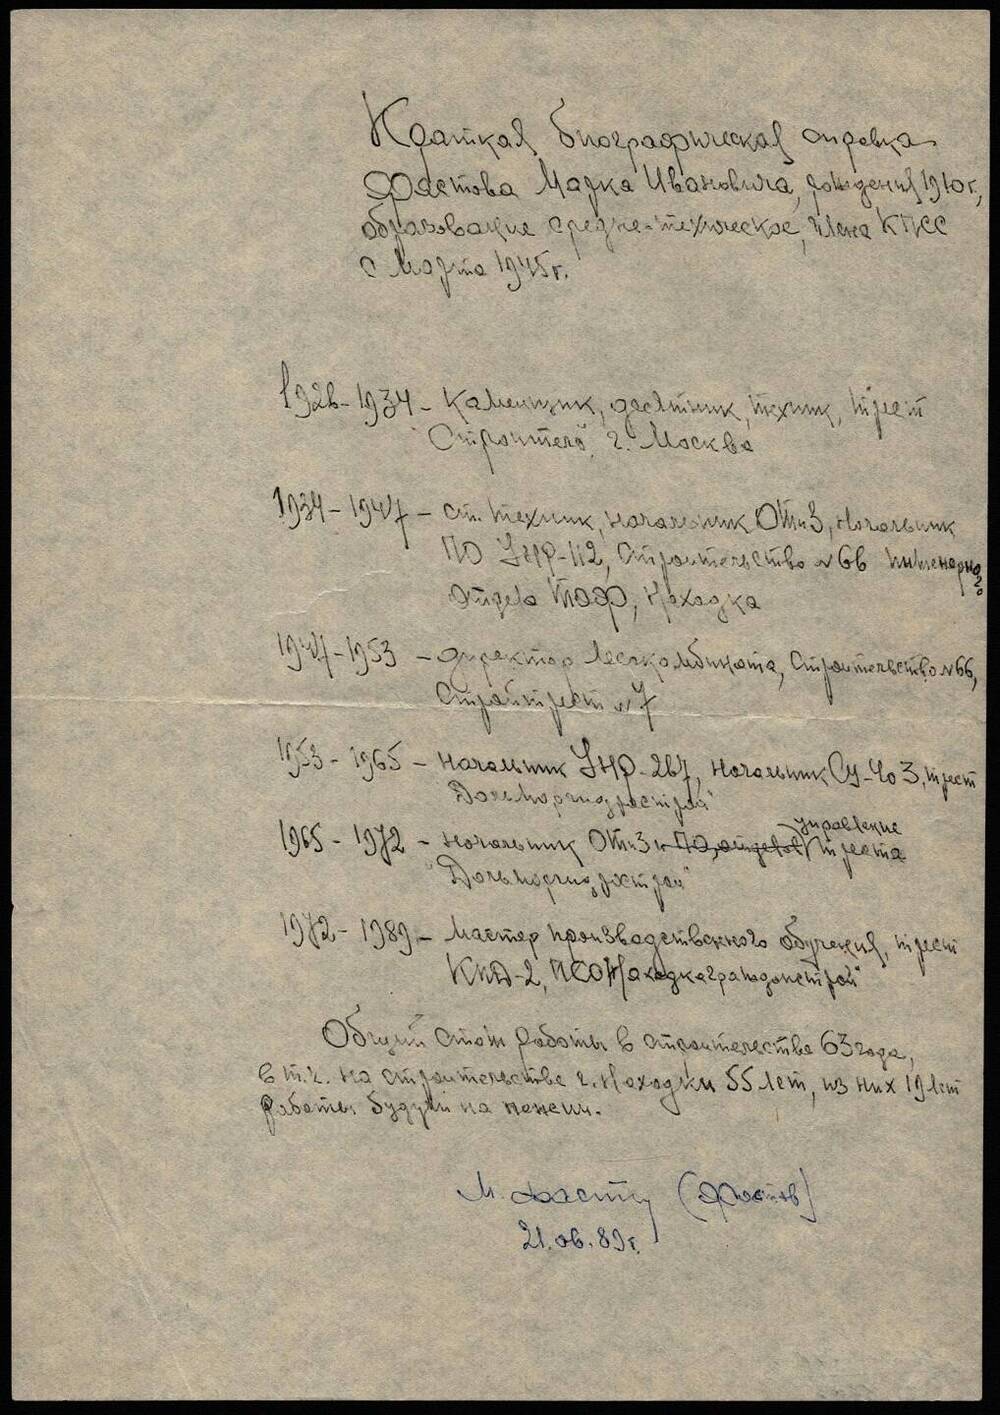 Краткая биографическая справка
Фастова Марка Ивановича, рождения 1910г,
образование средне-техническое, члена КПСС
с Марта 1945г.
1926-1934 - Каменщик, десятник, техник, трест
"Строитель", г. Москва
1934-1947 - ст. техник, начальник ОТиЗ, начальник
ПО УНР-112, строительство №66 инженерного
отдела ТОФ, Находка
1947-1953 - директор лесокомбината, строительство №66,
Стройтрест №7
1953-1965 - начальник УНР-267, начальник СУ-403, трест
"Дальморгидрострой"
1965-1972 - начальник ОТиЗ и ПО, отделов управление треста
"Дальморгидрострой"
1972-1989 - Мастер производственного обучения, трест
КПД-2, ПСО "Находкаграждонстрой"
Общий стаж работы в строительстве 63 года,
в т.ч. на строительстве г. Находки 55 лет, из них 19 лет
работы будучи на пенсии.
М. Фастов (Фастов)
21.06.89г.